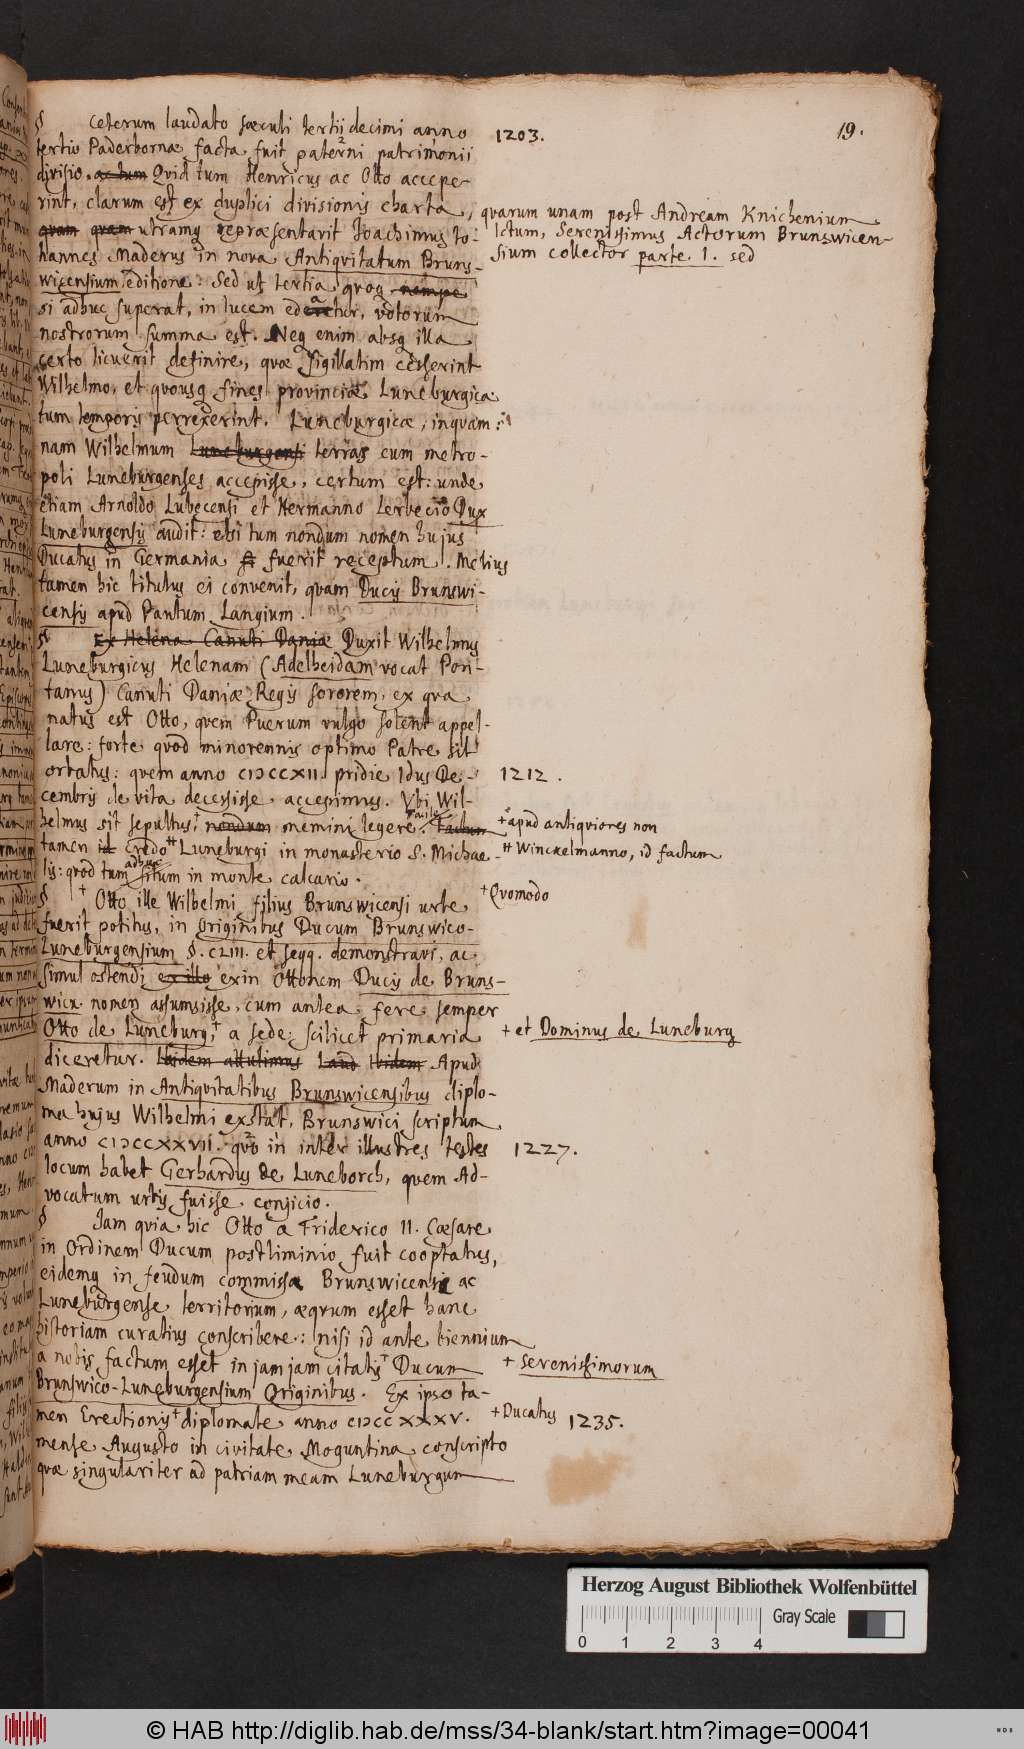 19.
§ Ceterum laudato sæculi tertii decimi anno
1203.
tertio Paderbornæ facta fuit paterni patrimonii
divisio. ac tum Qvid tum Henricus ac Otto accepe-
rint, clarum est ex duplici divisionis charta,
qvarum unam post Andream Knichenium
qvam qvam utramq repræsentarit Joachimus Jo-
Ictum, Serenissimus Actorum Brunswicen-
hannes Maderus in nova Antiqvitatum Bruns-
sium collector parte. I. sed
wicensium editione: Sed ut tertia qvoq nempe
si adhuc superat, in lucem edatur, votorum
nostrorum summa est. Neq enim absq illa
certo licuerit definire, qvæ sigillatim cesserint
Wilhelmo, et qvousq fines provinciæ Luneburgicæ
tum temporis perrexerint. Luneburgicæ, inqvam:
nam Wilhelmum Luneburgensi terras cum metro-
poli Luneburgenses accepisse, certum est: unde
etiam Arnoldo Lubecensi et Hermanno Lerbecio Dux
Luneburgensis audit: etsi tum nondum nomen hujus
Ducatus in Germania fuerit receptum. Melius
tamen hic titulus ei convenit, qvam Ducis Brunswi-
censis apud Paulum Langium.
§ Ex Helena Canuti Daniæ Duxit Wilhelmus
Luneburgicus Helenam (Adelheidam vocat Pon-
tanus) Canuti Daniæ Regis sororem, ex qva
natus est Otto, qvem Puerum vulgo solent appel-
lare: forte qvod minorennis optimo Patre sit
orbatus: qvem anno CIↃCCXII. pridie Idus De-
1212.
cembris de vita decessisse accepimus. Vbi Wil-
helmus sit sepultus, + nondum memini legere facile. Factum
+ apud antiqviores non
tamen id credo ++ Luneburgi in monasterio S. Michae-
++ Winckelmanno, id factum
lis: qvod tum adhuc situm in monte calcario.
§ + Otto ille Wilhelmi filius Brunswicensi urbe
+ Qvomodo
fuerit potitus, in Originibus Ducum Brunswico-
Luneburgensium §. CLIII. et seqq. demonstravi, ac
simul ostendi ex illo exin Ottonem Ducis de Bruns-
wick nomen assumsisse, cum antea fere semper
Otto de Luneburg, + a sede scilicet primaria
+ et Dominus de Luneburg
diceretur. Ibidem attulimus Laud Ibidem Apud
Maderum in Antiqvitatibus Brunswicensibus diplo-
ma hujus Wilhelmi exstat, Brunswici scriptum
anno CIↃCCXXVII. qvo in inter illustres testes
1227.
locum habet Gerhardus de Luneborch, qvem Ad-
vocatum urbis fuisse conjicio.
§ Jam qvia hic Otto a Friderico II. Cæsare
in Ordinem Ducum postliminio fuit cooptatus,
eidemq in feudum commissa Brunswicense ac
Luneburgense territorium, æqrum esset hanc
historiam curatius conscribere: nisi id ante biennium
a nobis factum esset in jam jam citatis + Ducum
+ Serenissimorum
Brunswico-Luneburgensium Originibus. Ex ipso ta-
men Erectionis + diplomate anno CIↃCCXXXV.
+ Ducatus 1235.
mense Augusto in civitate Moguntina conscripto
qvæ singulariter ad patriam meam Luneburgum
Herzog August Bibliothek Wolfenbüttel
Gray Scale
0 1 2 3 4
© HAB http://diglib.hab.de/mss/34-blank/start.htm?image=00041